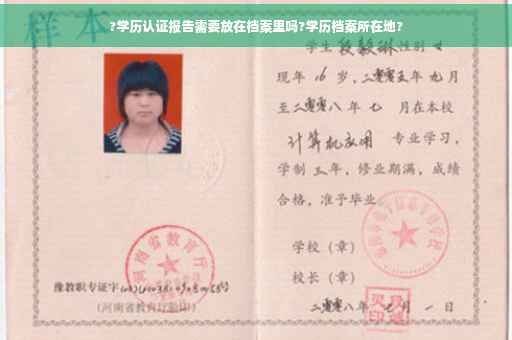 ?学历认证报告需要放在档案里吗?学历档案所在地?
样本
学生 段毅琳 性别 女
现年 16 岁,二零零五年 九 月
至二零零八 年 七 月在本校
计算机应用 专业学习,
学制 三 年,修业期满,成绩
合格,准予毕业
学校(章)
校长(章)
二零零八年 七 月 一 日
河南省教育厅
豫教职专证字
(河南省教育厅验印)